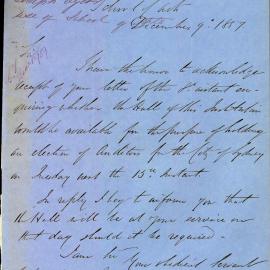 School of Arts
December 9th 1857
I have the honor to acknowledge
receipt of your letter of the 8th instant en-
quiring whether the Hall of this Institution
would be available for the purpose of holding
an election of Auditors for the City of Sydney
on Tuesday next the 15th Instant.
In reply I beg to inform you that
the Hall will be at your service on
that day should it be required.
I am Sir
Your obedient Servant